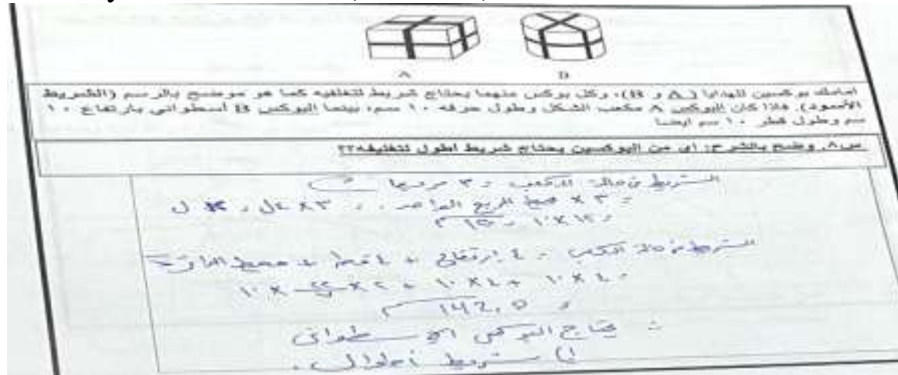 A B
أمامك بوكسين للهدايا (A و B)، وكل بوكس منهما يحتاج شريط لتغليفه كما هو موضح بالرسم (الشريط
الأسود). فإذا كان البوكس A مكعب الشكل وطول حرفه ١٠ سم، بينما البوكس B أسطواني بارتفاع ١٠
سم وطول قطر ١٠ سم ايضا
س٨. وضح بالشرح: أي من البوكسين يحتاج شريط أطول لتغليفه؟؟
الشريط في حالة المكعب = ٣
= ٣ × محيط المربع الواحد = ٣ × ٤ل
= ١٢ × ١٠ = ١٢٠
الشريط في حالة = ٤ ارتفاع + ٤ قطر + محيط الدائرة
= ٤ × ١٠ + ٤ × ١٠ +
= 142,8
يحتاج البوكس الاسطواني
شريط أطول.